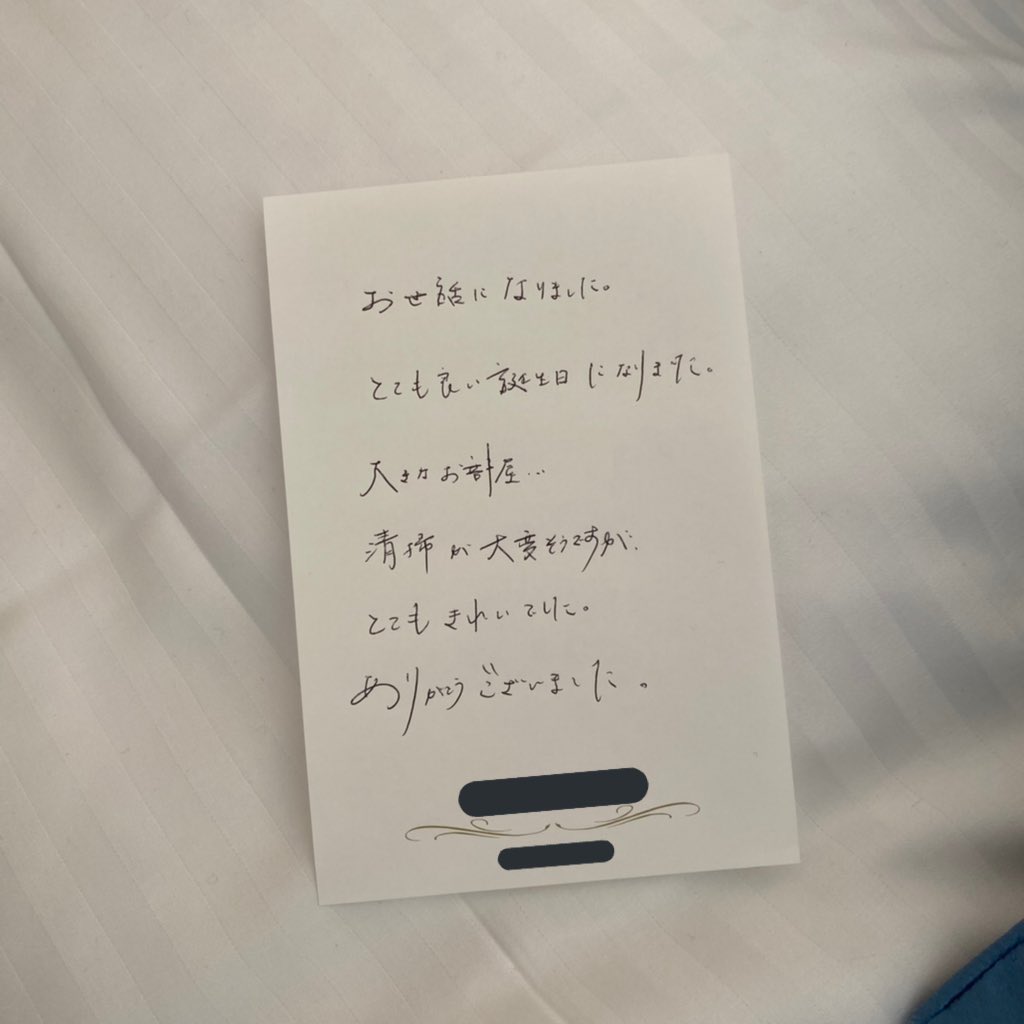 お世話になりました。
とても良い誕生日になりました。
大きなお部屋…
清掃が大変そうですが、
とてもきれいでした。
ありがとうございました。